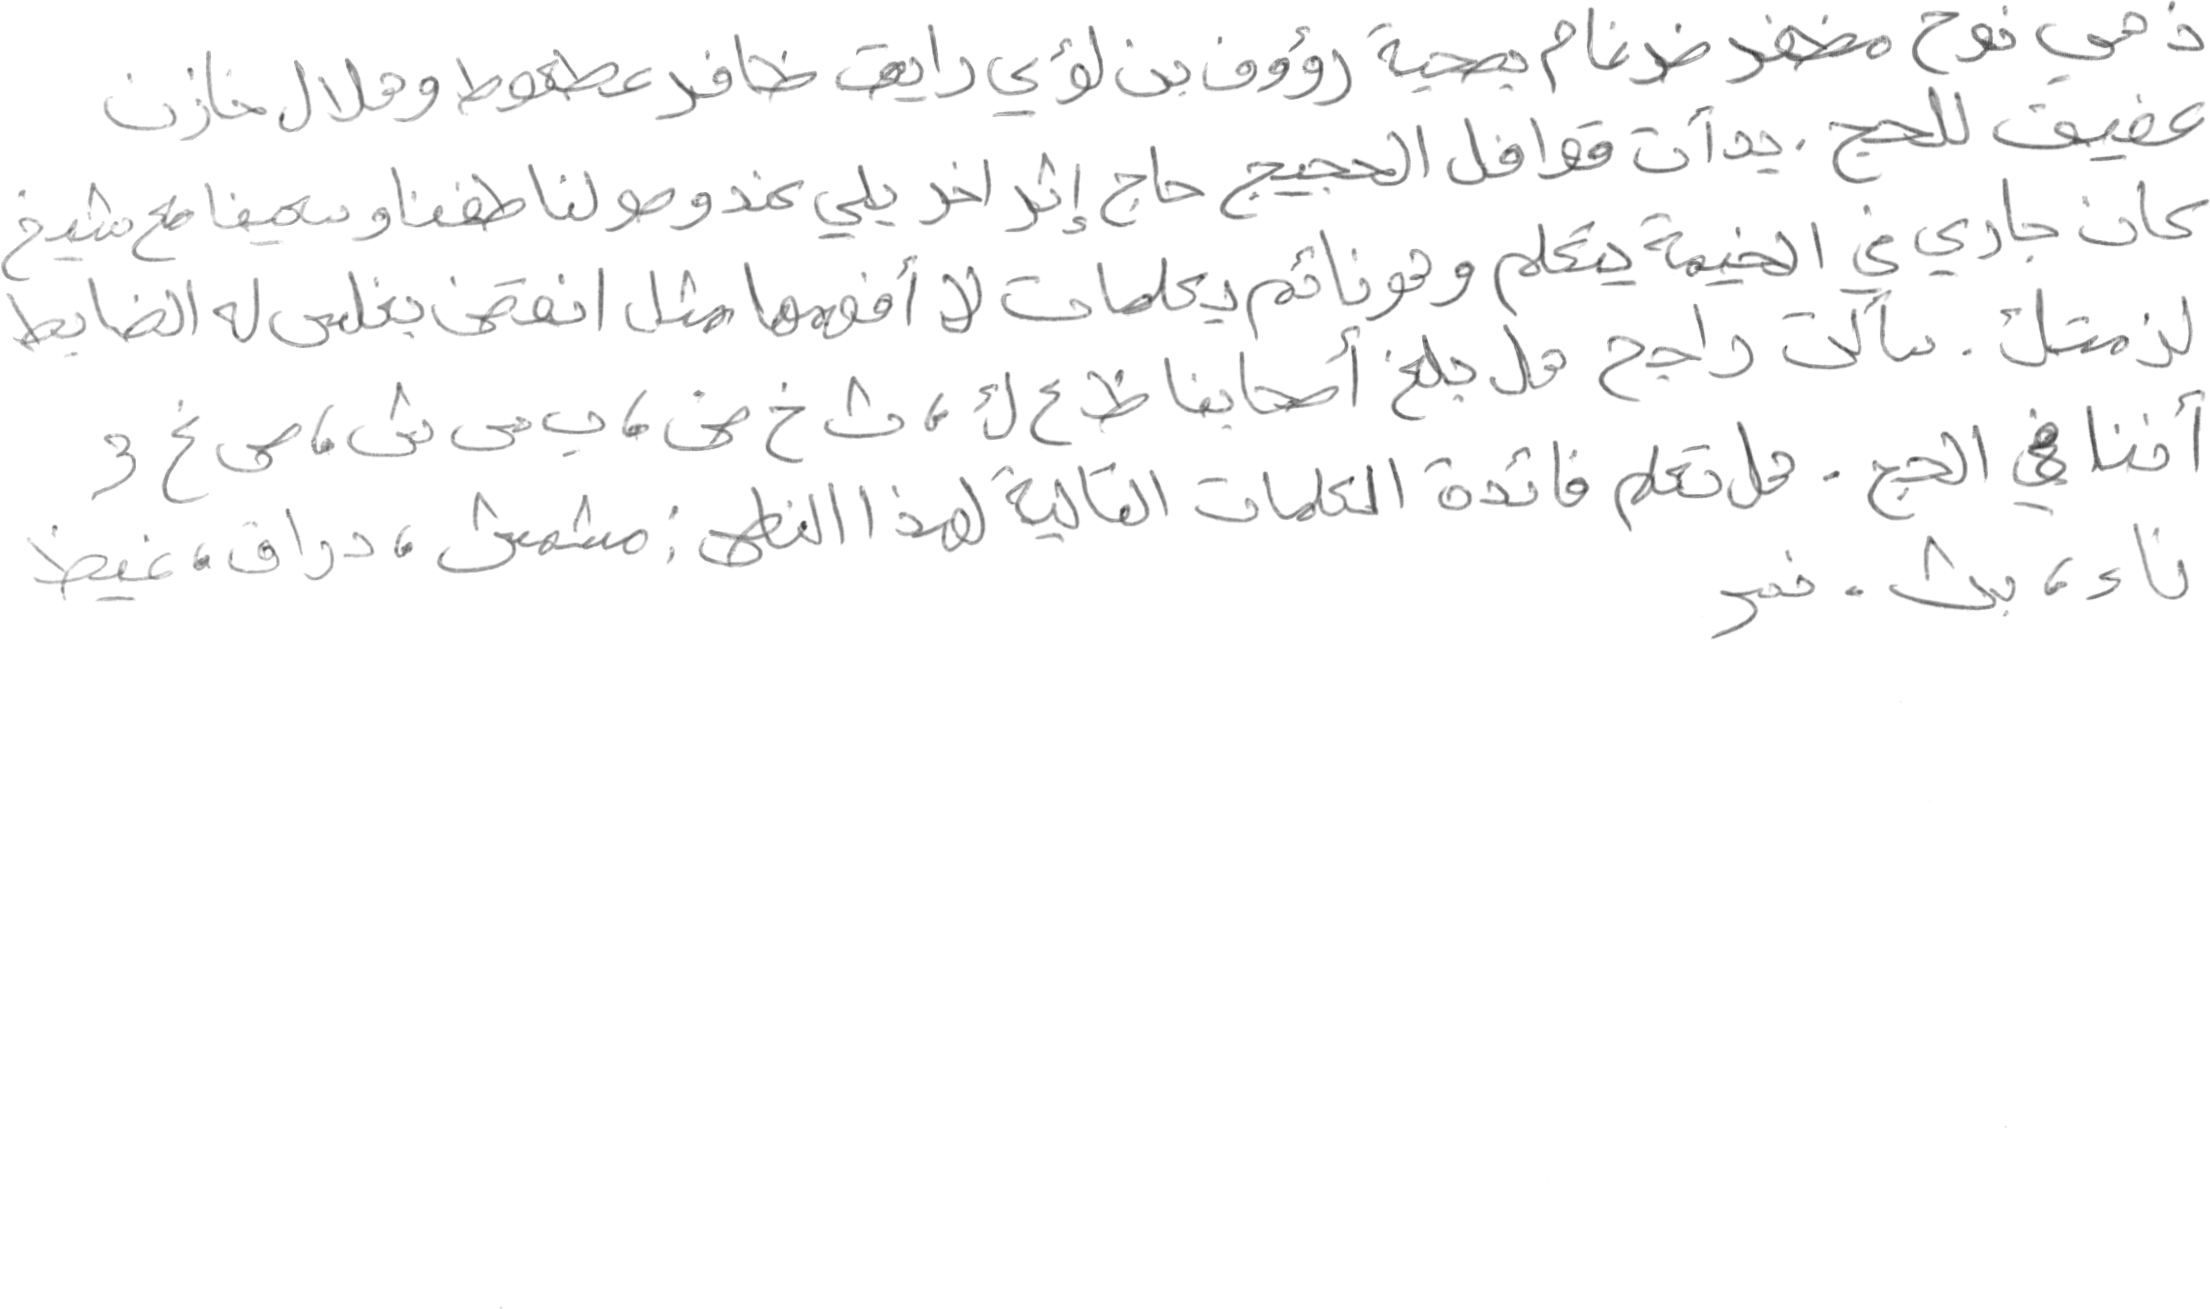 ذهب نوح مضفر ضرغام بصحبة رؤوف بن لؤي رايق ظافر عطعوط وهلال خازن
عفيف للحج . بدأت قوافل الحجيج حاج إثر اخر يلبي عند وصولنا طفنا وسعينا مع شيخ
كان جاري في الخيمة يتكلم وهو نائم بكلمات لا أفهمها مثل انقض بغلس له الضابط
لزمتك . سألت راجح هل بلغ أصحابنا ظ ع ك ، ث خ ض ، ب س ش ، ص غ و
أننا في الحج . هل تعلم فائدة الكلمات التالية لهذا النص : مشمش ، دراق ، غيظ
ناء ، بث . نمر